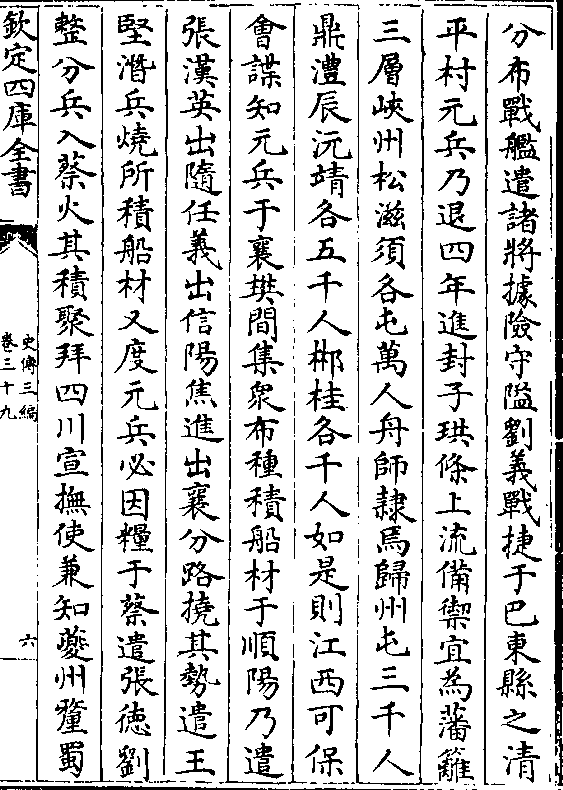 分布戰艦遣諸將據險守隘劉義戰捷于巴東縣之清
平村元兵乃退四年進封子珙條上流備禦宜為藩籬
三層峽州松滋須各屯萬人舟師隸焉歸州屯三千人
鼎澧辰沅靖各五千人郴桂各千人如是則江西可保
㑹諜知元兵于襄樊間集衆布種積船材于順陽乃遣
張漢英出隨任義出信陽焦進出襄分路撓其勢遣王
堅潛兵燒所積船材又度元兵必因糧于蔡遣張徳劉
整分兵入蔡火其積聚拜四川宣撫使兼知夔州釐蜀
欽定四庫全書
史傳三編
卷三十九
六